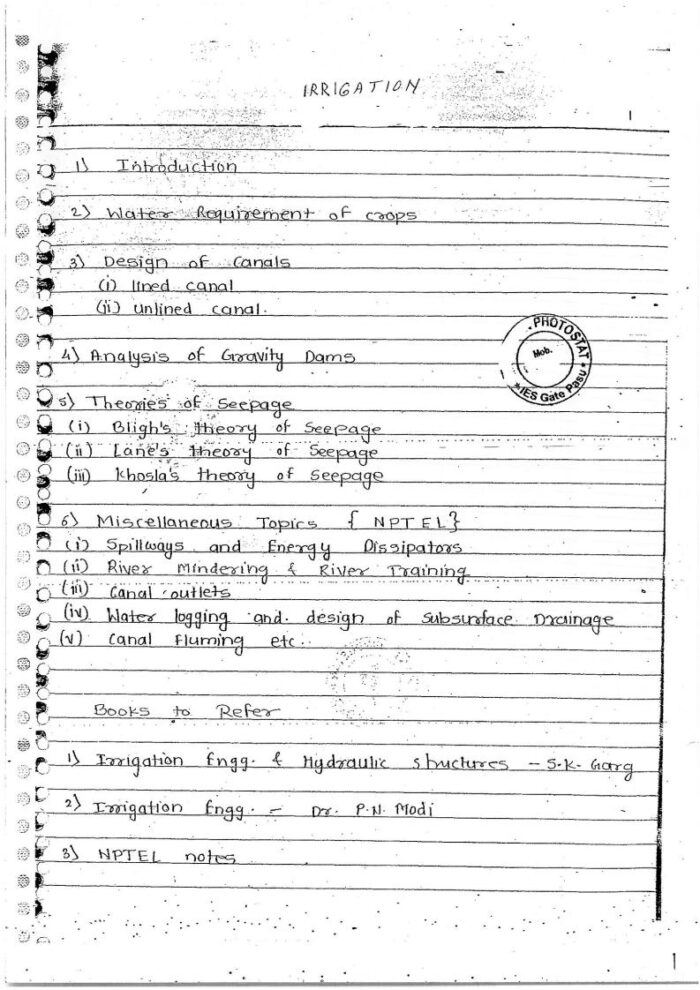 IRRIGATION
1
1) Introduction
2) Water Requirement of crops
3) Design of Canals
(i) lined canal
(ii) unlined canal.
4) Analysis of Gravity Dams
PHOTOSTAT
Mob.
IES Gate Pasu
5) Theories of Seepage
(i) Bligh's theory of Seepage
(ii) Lane's theory of Seepage
(iii) Khosla's theory of Seepage
6) Miscellaneous Topics { NPTEL}
(i) Spillways and Energy Dissipators
(ii) River Mindering & River Training
(iii) Canal outlets
(iv) Water logging and design of subsurface Drainage
(v) Canal Fluming etc.
Books to Refer
1) Irrigation Engg. & Hydraulic structures - S.K. Garg
2) Irrigation Engg. - Dr. P.N. Modi
3) NPTEL notes
1